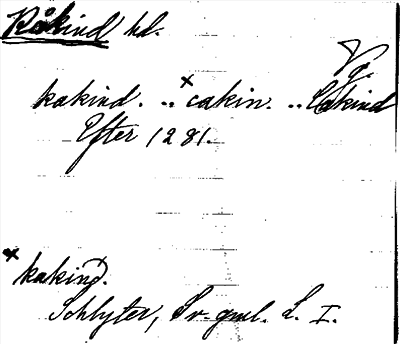 Kåkind hd.
Vg.
kakind. .. ˣcakin. .. Cakind
Efter 1281.
ˣ kakind.
Schlyter, Sv. gml. L. I.